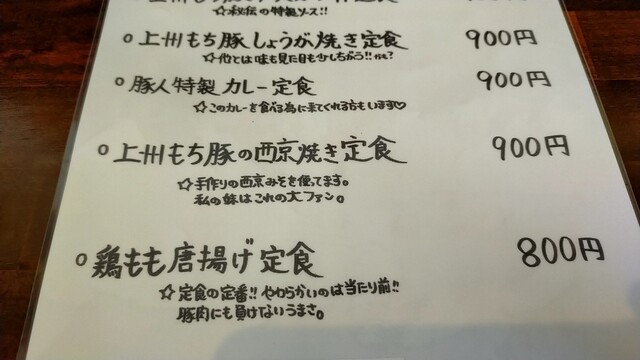 ☆秘伝の特製ソース!!
○上州もち豚しょうが焼き定食 900円
☆他とは味も見た目も少しちがう!!かも?
○豚人特製カレー定食 900円
☆このカレーを食べる為に来てくれる方もいます♡
○上州もち豚の西京焼き定食 900円
☆手作りの西京みそを使てます。
私の妹はこれの大ファン。
○鶏もも唐揚げ定食 800円
☆定食の定番!!やわらかいのは当たり前!!
豚肉にも負けないうまさ。